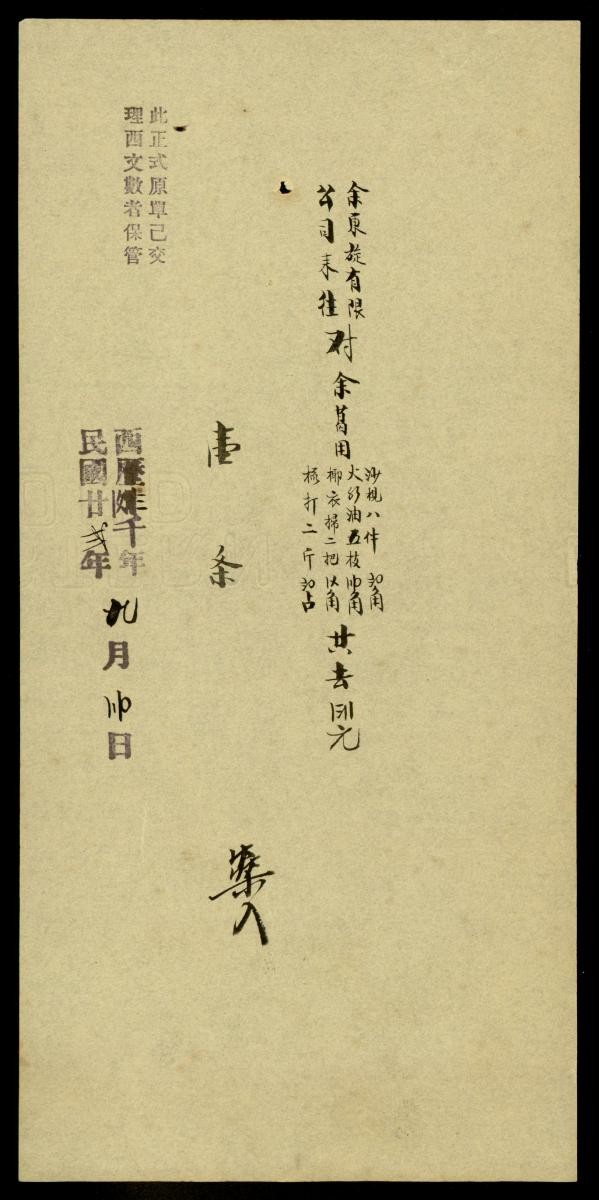 余東旋有限
公司来往
对余萬用
沙梘八件 角
火水油五枝 角
椰衣掃二把 角
二斤 占
共去 元
壹条
入
此正式原單已交
理西文數者保管
西歷 千年
民國廿弍年
九月 日